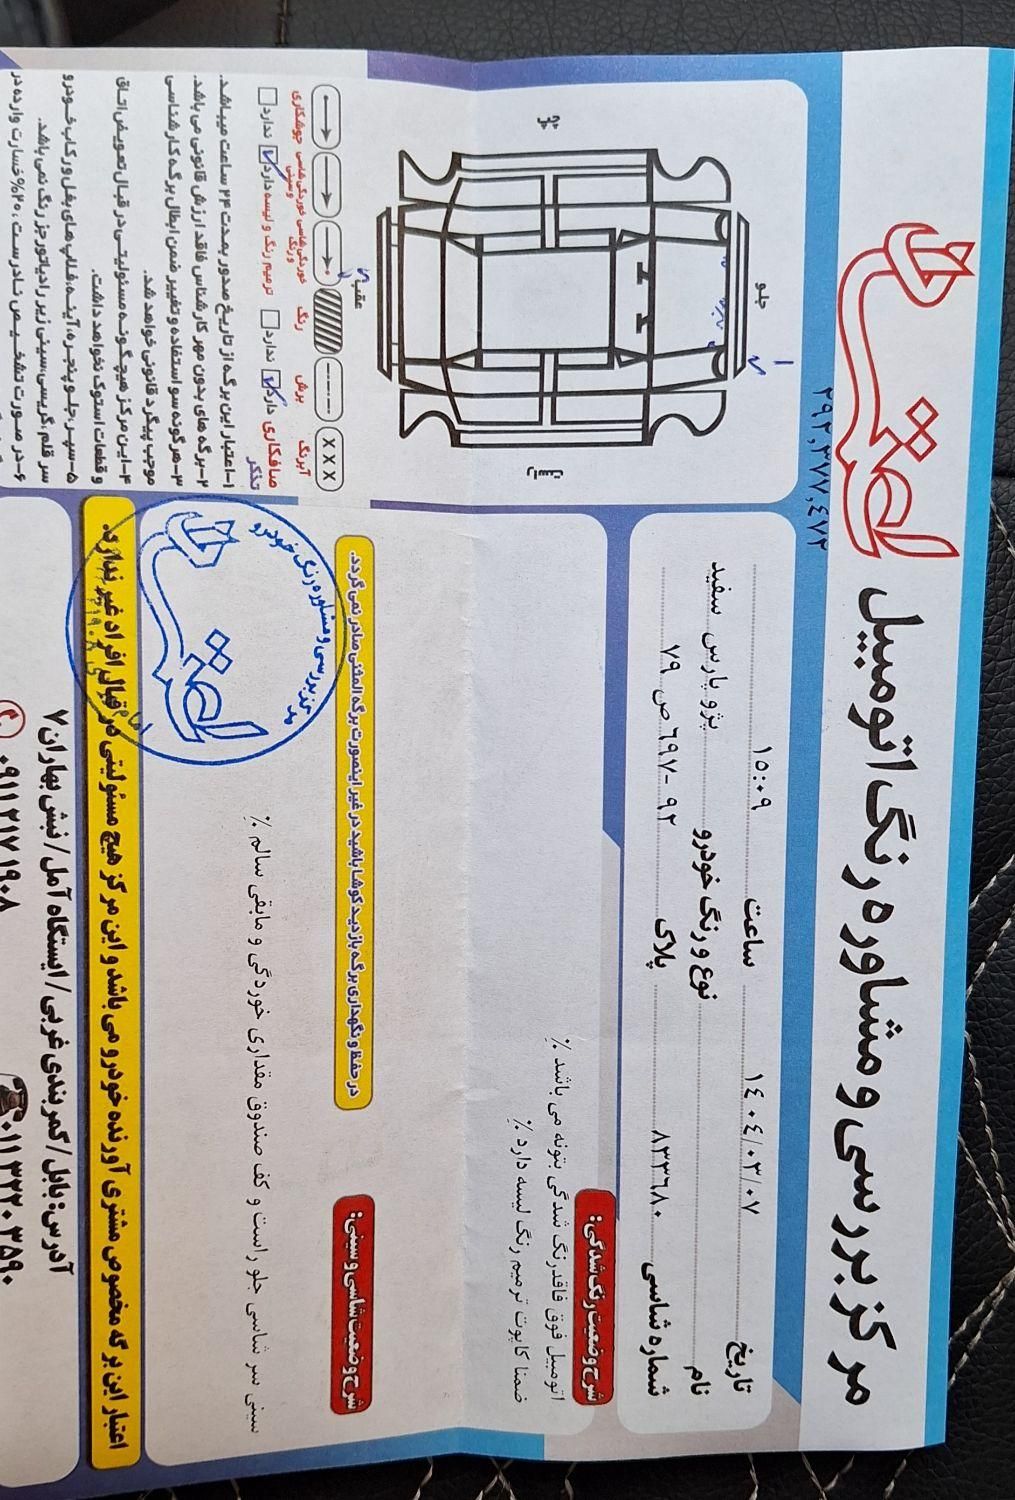 مرکز بررسی و مشاوره رنگ اتومبیل
۲۹۲,۳۷۷,٤۷۲
تاریخ ۱٤۰٤/۰۳/۰۷ ساعت ۱٥:۰۹
نام نوع و رنگ خودرو پژو پارس سفید
شماره شاسی ۸۳۳٦۸۰ پلاک ۹۲-٦۹۷ ص ۷۹
شرح وضعیت رنگ شدگی:
اتومبیل فوق فاقد رنگ شدگی بتونه می باشد٪
ضمنا کاپوت ترمیم رنگ لیسه دارد٪
جلو
عقب
رنگ
برش
آبرنگ
XXX
جوشکاری
ترمیم رنگ و لیسه دارد ندارد
صافکاری دارد ندارد
تذکر
۱-اعتبار این برگه از تاریخ صدور بمدت ۲۴ ساعت میباشد.
۲-برگه های بدون مهر کارشناس فاقد ارزش قانونی می باشد.
۳-هرگونه سو استفاده و تغییر ضمن ابطال برگه کارشناسی
موجب پیگرد قانونی خواهد شد.
۴-این مرکز هیچگونه مسئولیتی در قبال تعویض اتاق
و قطعات استوک نخواهد داشت.
۵-سپر،جلو پنجره،آینه،قلاب های بغل و رکاب خودرو
سر قلم،گریسی،سینی زیر رادیاتور جز رنگ نمی باشد.
۶-در صورت تشخیص نادرست ،۲۰% خسارت وارده در
شرح وضعیت شاسی و سینی:
در حفظ و نگهداری برگه بازدید کوشا باشید در غیر اینصورت برگه المثنی صادر نمی گردد.
سینی سر شاسی جلو راست و کف صندوق مقداری خوردگی و مابقی سالم٪
مرکز بررسی و مشاوره رنگ خودرو
اعتبار این برگه مخصوص مشتری آورنده خودرو می باشد و این مرکز هیچ مسئولیتی در قبال افراد غیر ندارد.
آدرس: بابل/ کمربندی غربی/ ایستگاه آمل/ نبش بهاران۷
۰۱۱۳۲۲۰۳۵۹۰ ۰۹۱۱۲۱۷۱۹۰۸